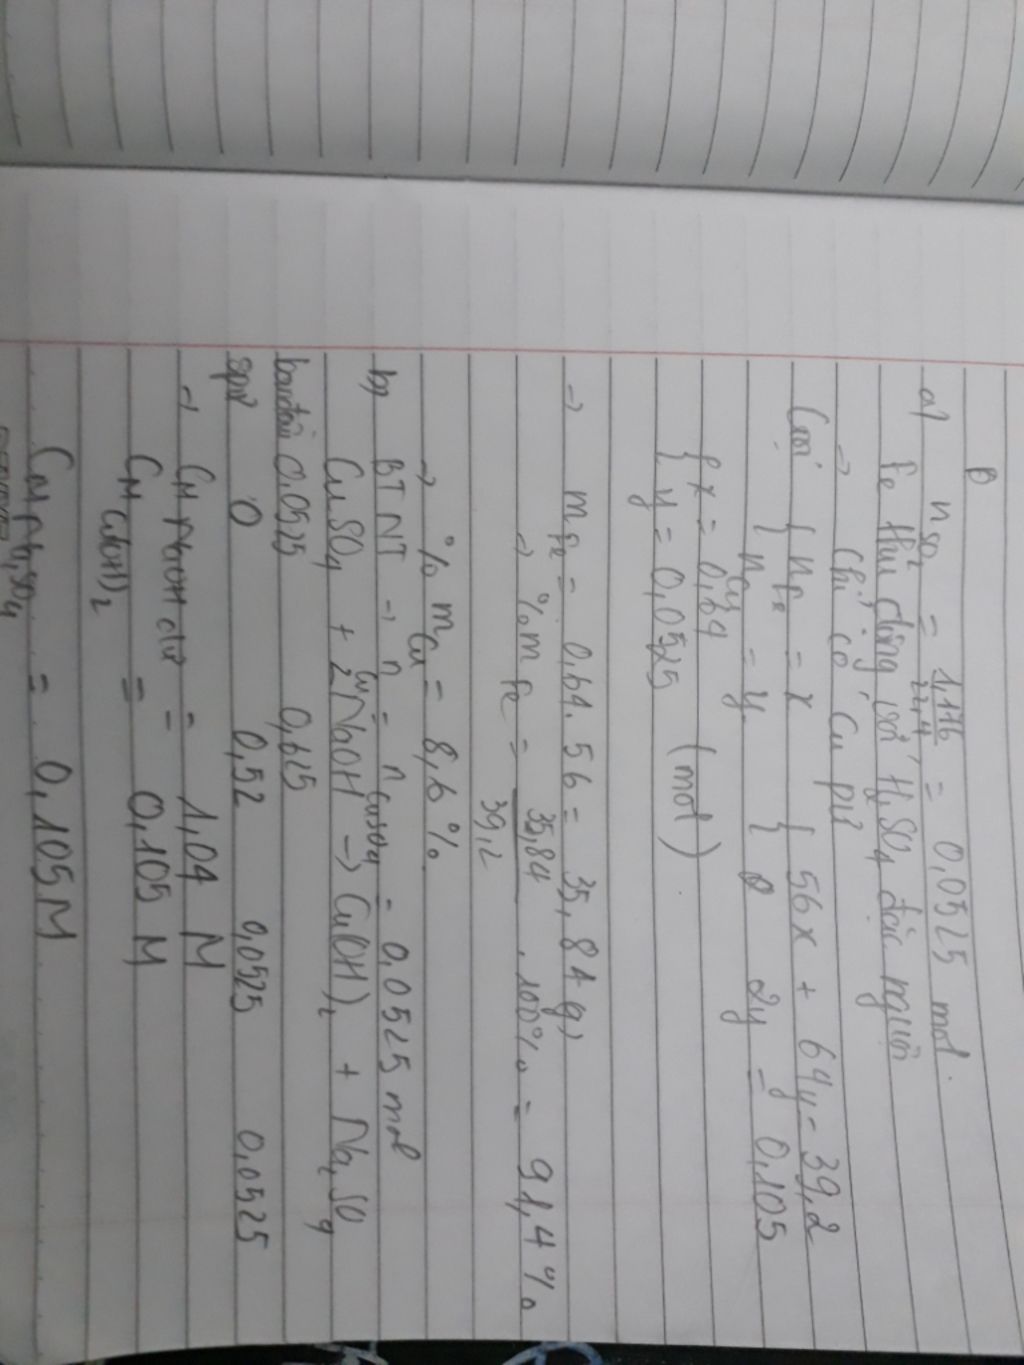 a) nSO2 = 1,176/22,4 = 0,0525 mol.
Fe thụ động với H2SO4 đặc nguội
→ Chỉ có Cu pứ
Gọi { nFe = x { 56x + 64y = 39,2
{ nCu = y { 0 2y = 0,105
{ x = 0,64
{ y = 0,0525 (mol)
→ mFe = 0,64.56 = 35,84 g)
→ %mFe = 35,84/39,2 . 100% = 91,4%
→ %mCu = 8,6%.
b, BTNT → nCu = nCuSO4 = 0,0525 mol
CuSO4 + 2NaOH → Cu(OH)2 + Na2SO4
ban đầu 0,0525 0,625
spứ 0 0,52 0,0525 0,0525
→ CM NaOH dư = 1,04 M
CM Cu(OH)2 = 0,105 M
CM Na2SO4 = 0,105M